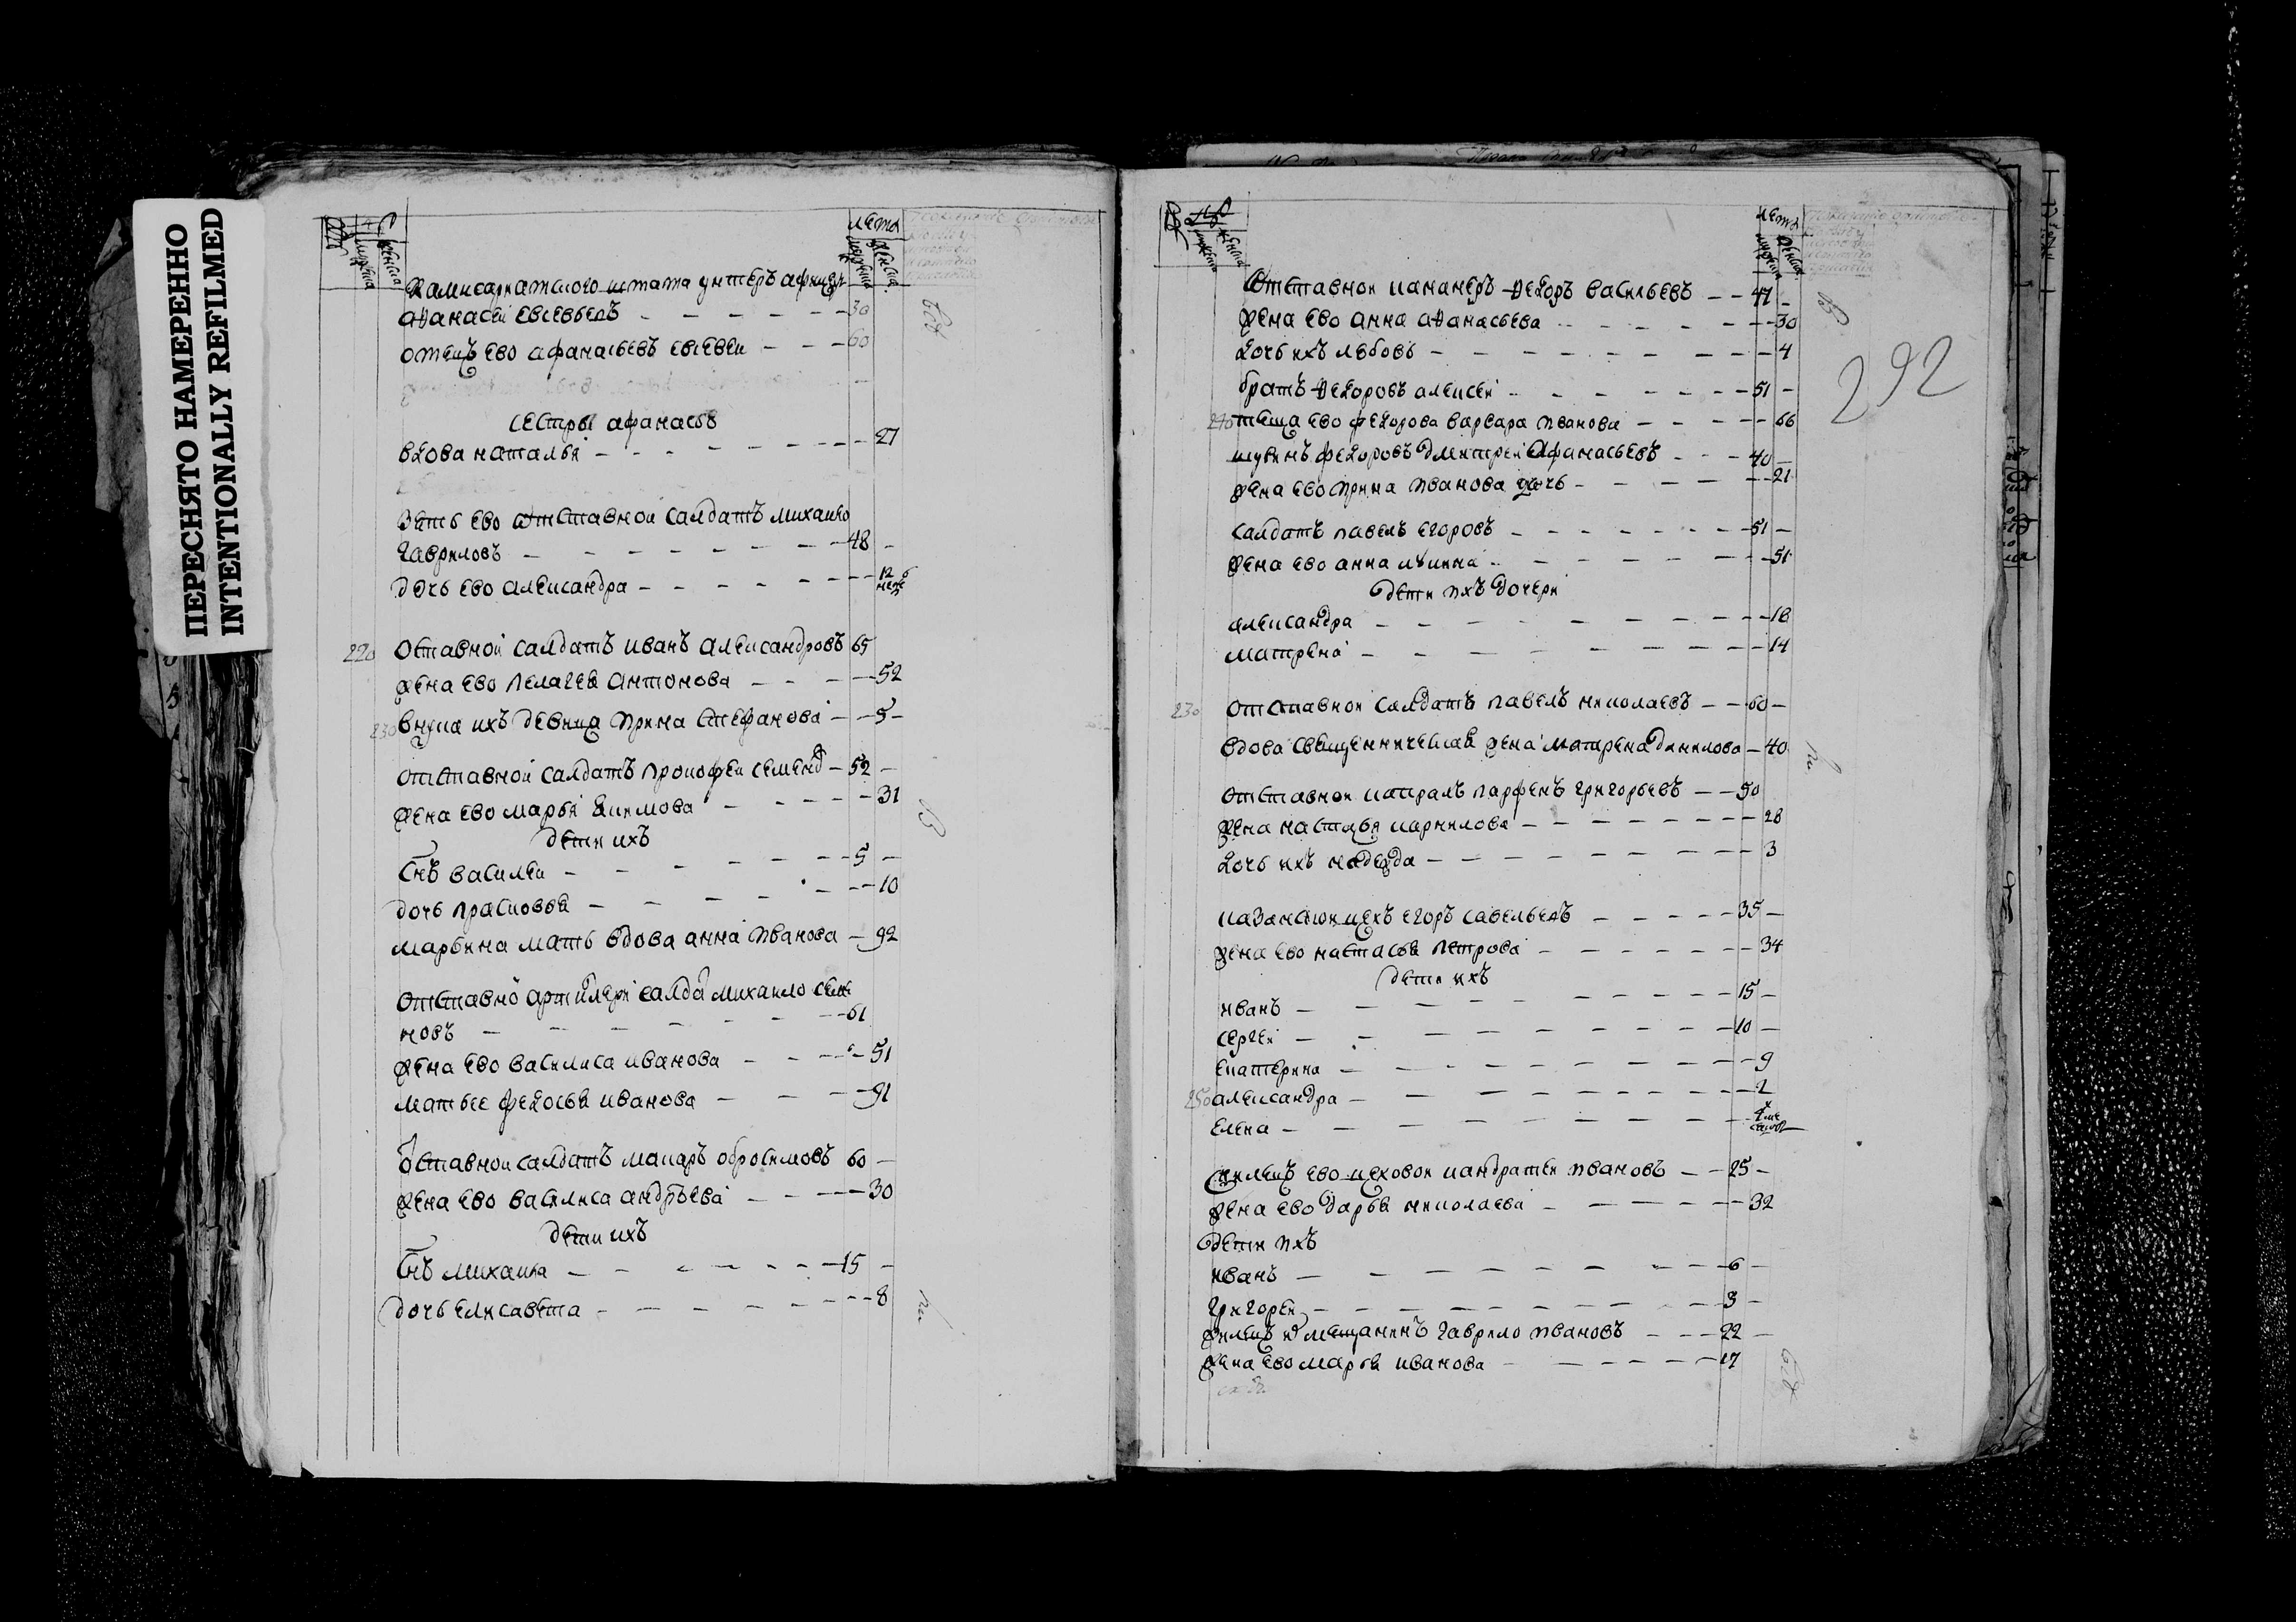 ПЕРЕСНЯТО НАМЕРЕННО
INTENTIONALLY REFILMED
лета
мужеска
женска
Камисариатского штата унтеръ афицеръ
аѳанасеи евсевьевъ 30
отецъ ево афанасьевъ евсевеи 60
сестры афанасьѣ
вдова наталья 27
Зять ево отставнои салдатъ михаило
гавриловъ 48
дочь ево александра 12
220 отставнои салдатъ иванъ александровъ 65
жена ево пелагея антонова 52
230 внука ихъ девица ирина стефанова 5
отставнои салдатъ прокофеи семено 52
жена ево марья екимова 31
дети ихъ
снъ василеи 5
дочь прасковья 10
марьина мать вдова анна иванова 92
отставно артилери салда михаило семе
новъ 61
жена ево василиса иванова 51
мать ее федосья иванова 91
оставнои салдатъ макаръ обросимовъ 60
жена ево василиса андрѣева 30
дети ихъ
снъ михаила 15
дочь елисавета 8
лета
мужеска
женска
292
Отставнои кананеръ ѳедоръ васильевъ 47
жена ево анна аѳанасьева 30
дочь ихъ любовь 4
братъ ѳедоровъ алексеи 51
теща ево федорова варвара иванова 66
шуринъ федоровъ дмитреи афанасьевъ 40
жена ево ирина иванова дочь 21
салдатъ павелъ егоровъ 51
жена ево анна 51
дети ихъ дочери
александра 18
матрена 14
230 отставнои салдатъ павелъ николаевъ 60
вдова священническая жена матрена данилова 40
отставнои капралъ парфенъ григорьевъ 50
жена настасья карнилова 28
дочь ихъ надежда 3
егоръ савельевъ 35
жена ево настасья петрова 34
дети ихъ
иванъ 15
сергеи 10
екатерина 9
250 александра 2
елена
жилецъ ево цеховои кандратеи ивановъ 25
жена ево дарья николаева 32
дети ихъ
иванъ 6
григореи 3
жилецъ мещанинъ гаврило ивановъ 22
жена ево марья иванова 17